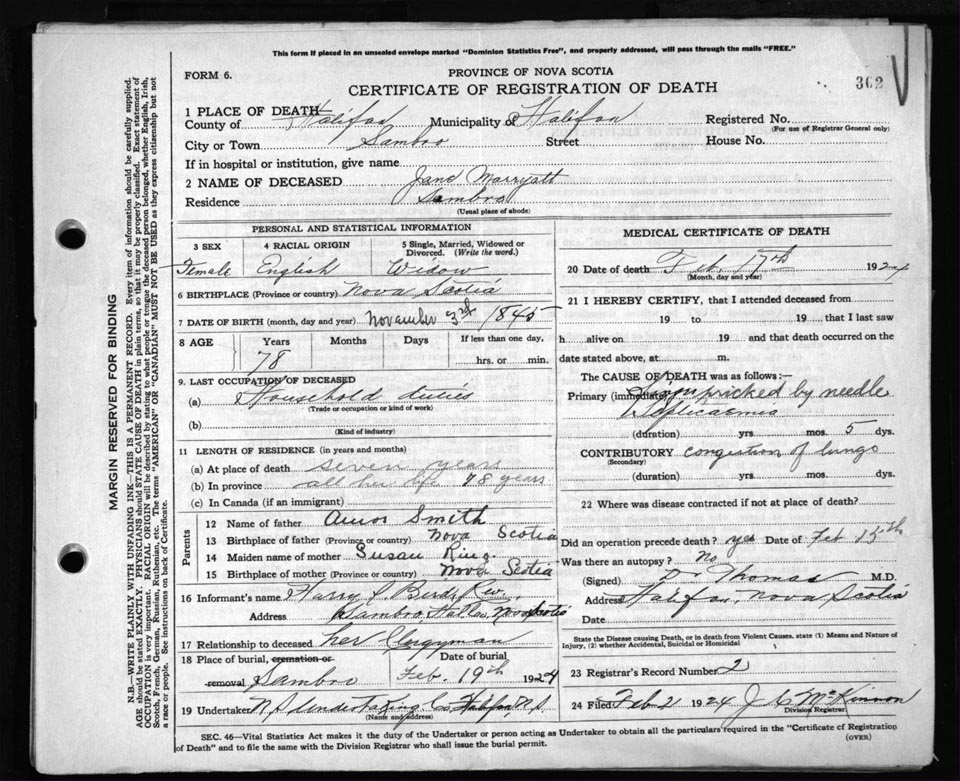 This form if placed in an unsealed envelope marked "Dominion Statistics Free", and properly addressed, will pass through the mails "FREE."
FORM 6.
PROVINCE OF NOVA SCOTIA
CERTIFICATE OF REGISTRATION OF DEATH
302
1 PLACE OF DEATH
County of Halifax Municipality of Halifax Registered No.
(For use of Registrar General only)
City or Town Sambro Street House No.
If in hospital or institution, give name
2 NAME OF DECEASED Jane Marryatt
Residence Sambro
(Usual place of abode)
MARGIN RESERVED FOR BINDING
N.B.—WRITE PLAINLY WITH UNFADING INK—THIS IS A PERMANENT RECORD. Every item of information should be carefully supplied.
AGE should be stated EXACTLY. PHYSICIANS should STATE CAUSE OF DEATH in plain terms, so that it may be properly classified. Exact statement of
OCCUPATION is very important. RACIAL ORIGIN will be described by stating to what people or tongue the deceased person belonged, whether English, Irish,
Scotch, French, German, Russian, Ruthenian, etc. The terms "AMERICAN" OR "CANADIAN" MUST NOT BE USED as they express citizenship but not
a race or people. See instructions on back of Certificate.
PERSONAL AND STATISTICAL INFORMATION
3 SEX 4 RACIAL ORIGIN 5 Single, Married, Widowed or Divorced. (Write the word.)
Female English Widow
6 BIRTHPLACE (Province or country) Nova Scotia
7 DATE OF BIRTH (month, day and year) November 3rd 1845
8 AGE Years Months Days If less than one day,
78 hrs. or min.
9. LAST OCCUPATION OF DECEASED
(a) Household duties
(Trade or occupation or kind of work)
(b)
(Kind of industry)
11 LENGTH OF RESIDENCE (in years and months)
(a) At place of death seven years
(b) In province all her life 78 years
(c) In Canada (if an immigrant)
Parents
12 Name of father Amos Smith
13 Birthplace of father (Province or country) Nova Scotia
14 Maiden name of mother Susan Ring
15 Birthplace of mother (Province or country) Nova Scotia
16 Informant's name Harry S Bird, Rev.
Address Sambro Halifax Nova Scotia
17 Relationship to deceased her Clergyman
18 Place of burial, cremation or Date of burial
removal Sambro Feb. 19th 1924
19 Undertaker N S Undertaking Co Halifax N S
(Name and address)
MEDICAL CERTIFICATE OF DEATH
20 Date of death Feb. 17th 1924
(Month, day and year)
21 I HEREBY CERTIFY, that I attended deceased from
19 to 19 that I last saw
h alive on 19 and that death occurred on the
date stated above, at m.
The CAUSE OF DEATH was as follows:—
Primary (immediate) pricked by needle
Septicaemia
(duration) yrs. mos. 5 dys.
CONTRIBUTORY congestion of lungs
(Secondary)
(duration) yrs. mos. dys.
22 Where was disease contracted if not at place of death?
Did an operation precede death? yes Date of Feb 15th
Was there an autopsy? No
(Signed) Thomas M.D.
Address Halifax, Nova Scotia
Date
State the Disease causing Death, or in death from Violent Causes, state (1) Means and Nature of
Injury, (2) whether Accidental, Suicidal or Homicidal
23 Registrar's Record Number 2
24 Filed Feb 21 1924 J C McKinnon
Division Registrar
SEC. 46—Vital Statistics Act makes it the duty of the Undertaker or person acting as Undertaker to obtain all the particulars required in the "Certificate of Registration
of Death" and to file the same with the Division Registrar who shall issue the burial permit.
(OVER)